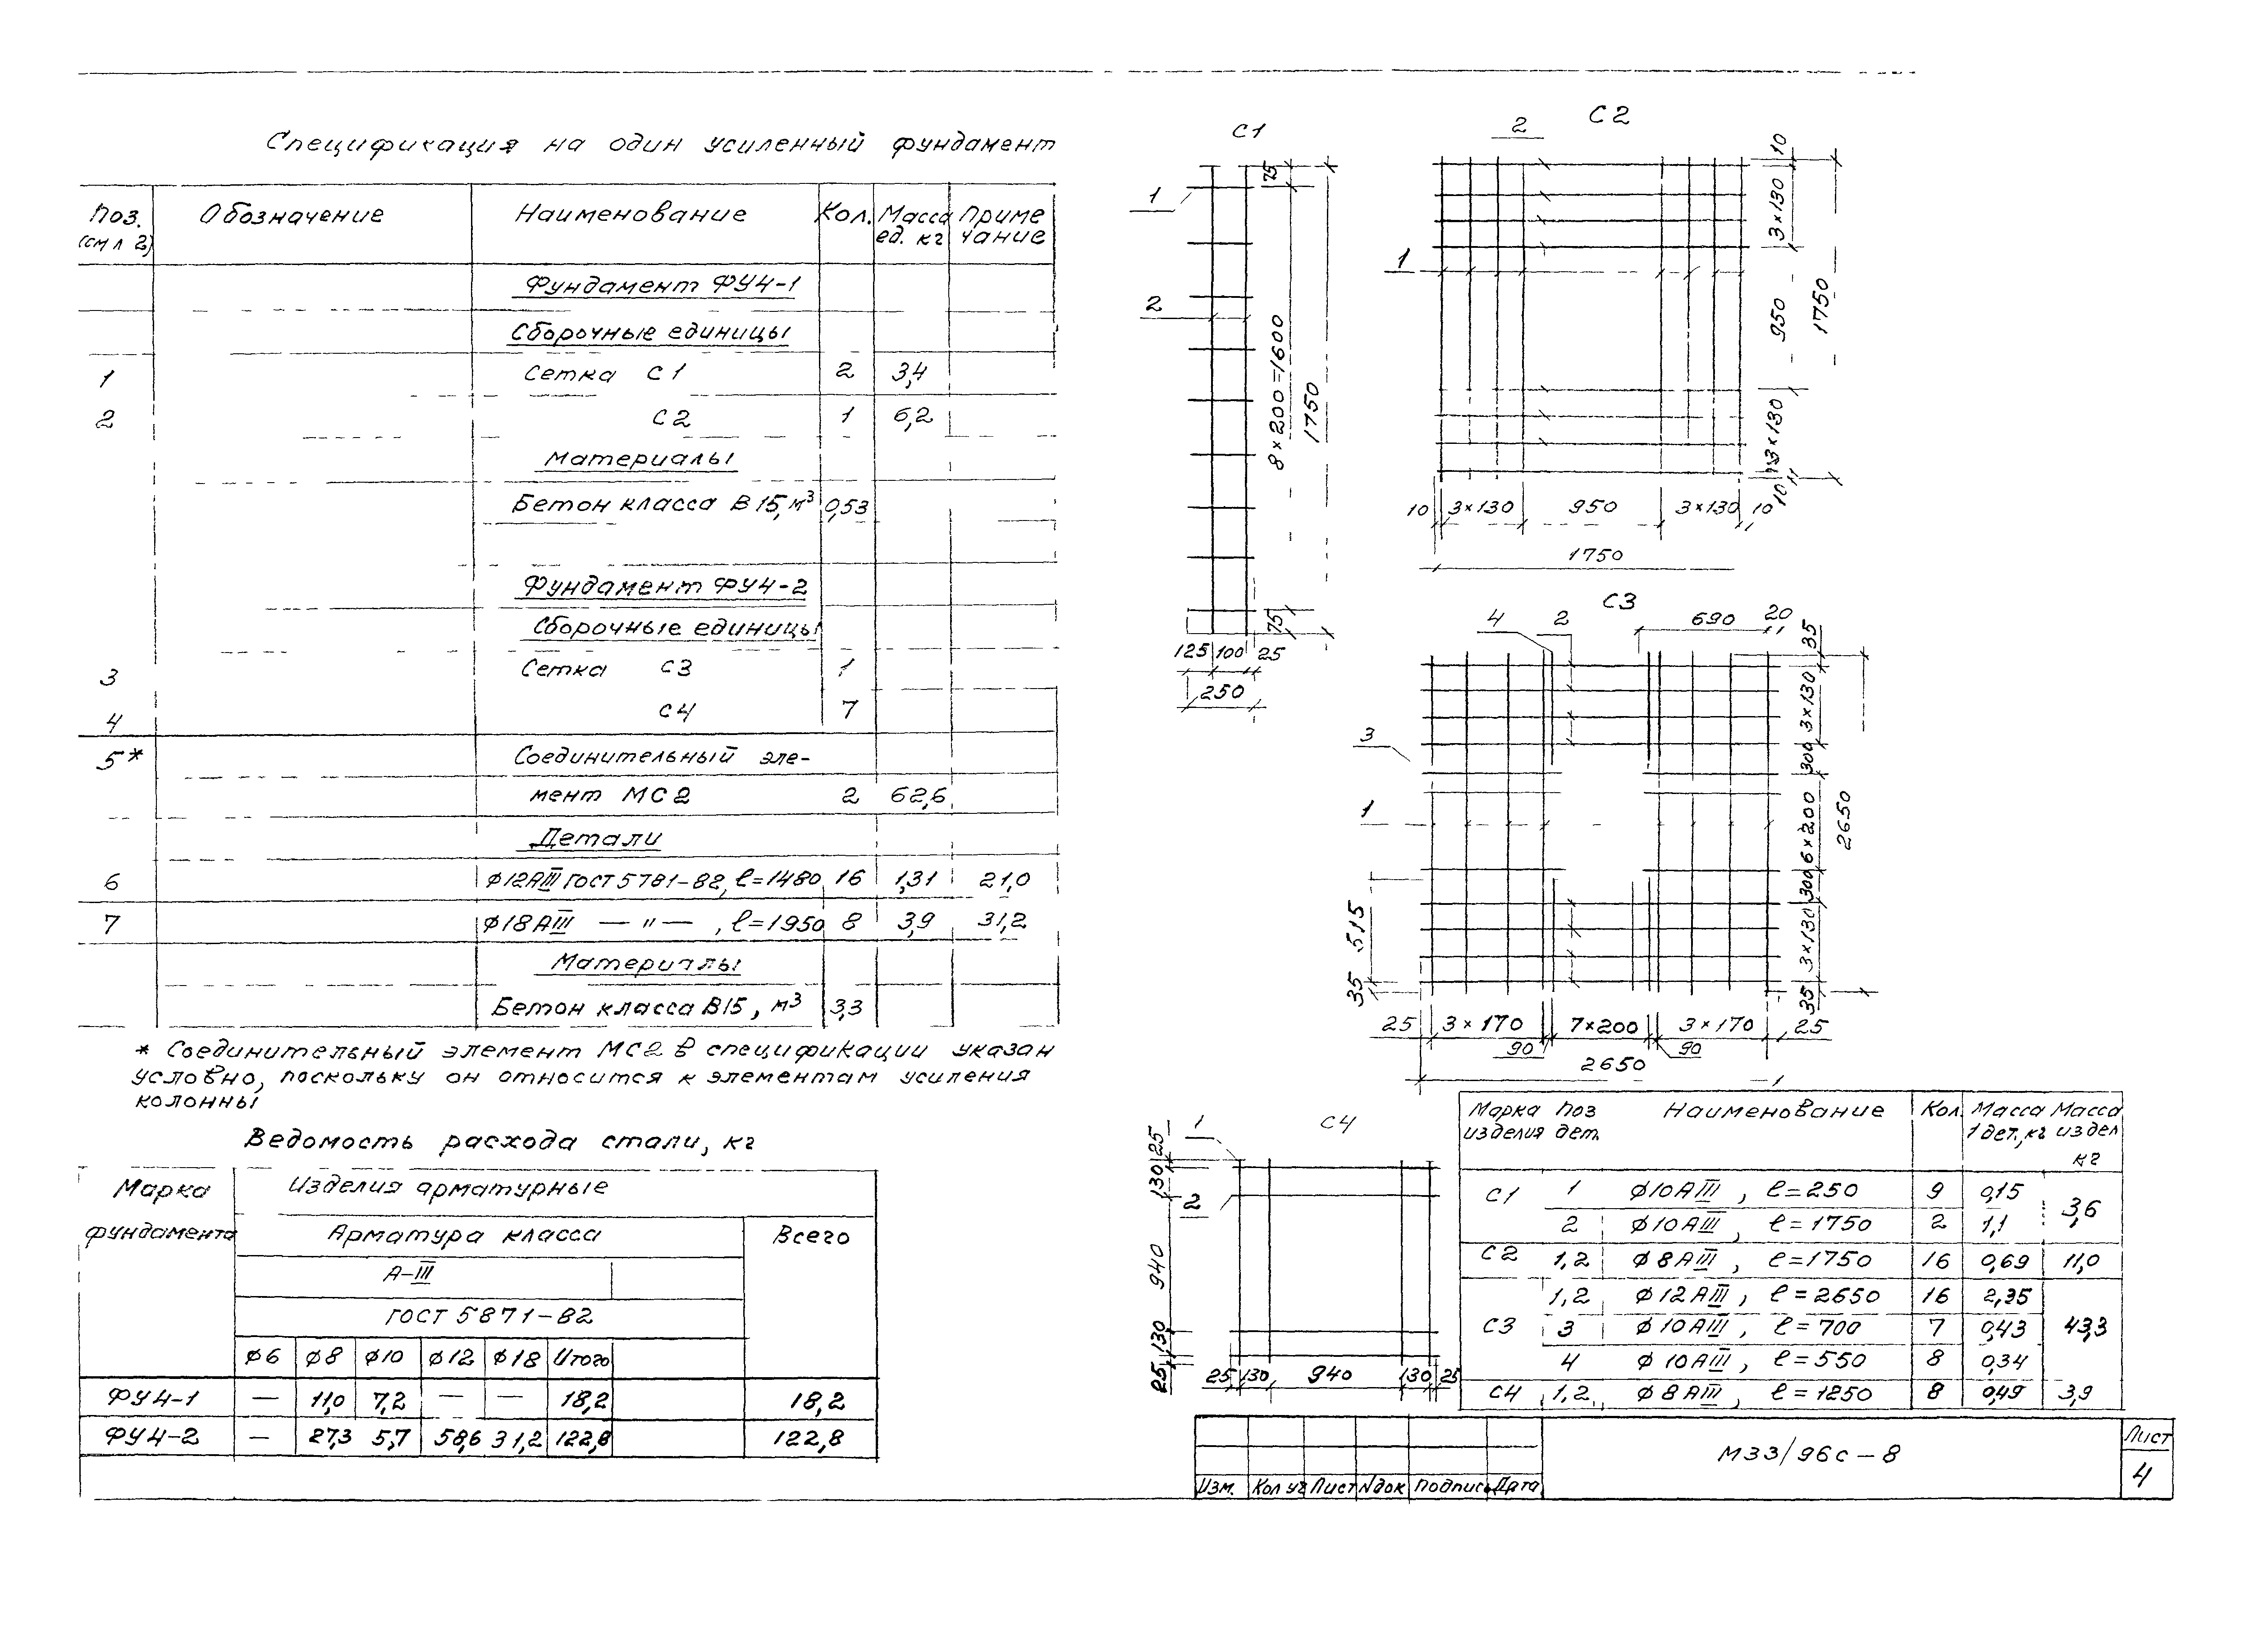 Спецификация на один усиленный фундамент
Поз. Обозначение Наименование Кол. Масса Приме
(см л 2) ед. кг чание
Фундамент ФУ4-1
Сборочные единицы
1 Сетка С1 2 3,4
2 С2 1 6,2
Материалы
Бетон класса В15, м³ 0,53
Фундамент ФУ4-2
Сборочные единицы
3 Сетка С3 1
4 С4 7
5* Соединительный эле-
мент МС2 2 62,6
Детали
6 ф12АIII ГОСТ 5781-82, ℓ=1480 16 1,31 21,0
7 ф18АIII — " — , ℓ=1950 8 3,9 31,2
Материалы
Бетон класса В15, м³ 3,3
* Соединительный элемент МС2 в спецификации указан
условно, поскольку он относится к элементам усиления
колонны
Ведомость расхода стали, кг
Марка Изделия арматурные
фундамента Арматура класса Всего
А-III
ГОСТ 5871-82
ф6 ф8 ф10 ф12 ф18 Итого
ФУ4-1 — 11,0 7,2 — — 18,2 18,2
ФУ4-2 — 27,3 5,7 58,6 31,2 122,8 122,8
С1
1
2
75
8×200=1600
1750
75
125 100 25
250
С2
2
1
10
3×130
950
1750
3×130
10
10 3×130 950 3×130 10
1750
С3
4 2 690 20
3
1
35
3×130
300
6×200
2650
300
3×130
35
515
35
25 3×170 7×200 3×170 25
90 90
2650
С4
1
2
25
130
940
130
25
25 130 940 130 25
Марка Поз Наименование Кол. Масса Масса
изделия дет. 1 дет., кг издел
кг
С1 1 ф10АIII, ℓ=250 9 0,15 3,6
2 ф10АIII, ℓ=1750 2 1,1
С2 1,2 ф8АIII, ℓ=1750 16 0,69 11,0
1,2 ф12АIII, ℓ=2650 16 2,35
С3 3 ф10АIII, ℓ=700 7 0,43 43,3
4 ф10АIII, ℓ=550 8 0,34
С4 1,2 ф8АIII, ℓ=1250 8 0,49 3,9
Изм. Кол уч Лист №док Подпись Дата
М33/96с-8
Лист
4